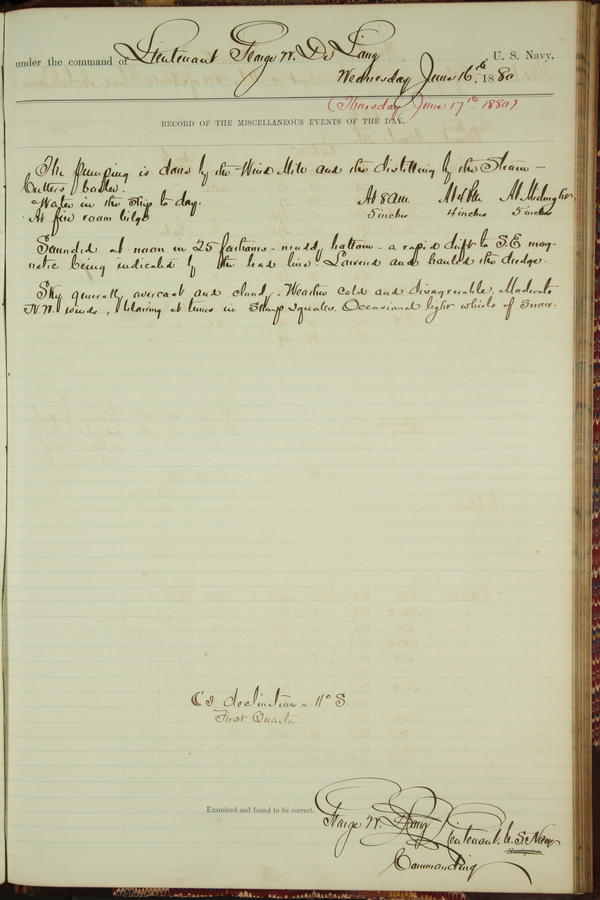 under the command of Lieutenant George W. De Long U. S. Navy,
Wednesday June 16th, 1880
(Thursday June 17th 1880)
RECORD OF THE MISCELLANEOUS EVENTS OF THE DAY.
The pumping is done by the Wind Mill and the distilling by the Steam-
Cutters boiler.
Water in the ship to day. At 8 a.m. At 4 P.M. At Midnight
At fire room bilge 5 inches 4 inches 5 inches
Sounded at noon in 25 fathoms - muddy bottom - a rapid drift to S.E. mag-
netic being indicated by the lead line. Lowered and hauled the dredge.
Sky generally overcast and cloudy. Weather cold and disagreeable. Moderate
N.W. winds, blowing at times in sharp squalls. Occasional light whirls of snow.
declination 11° S.
First Quarter
Examined and found to be correct.
George W. De Long Lieutenant U.S. Navy
Navigator.
Commanding